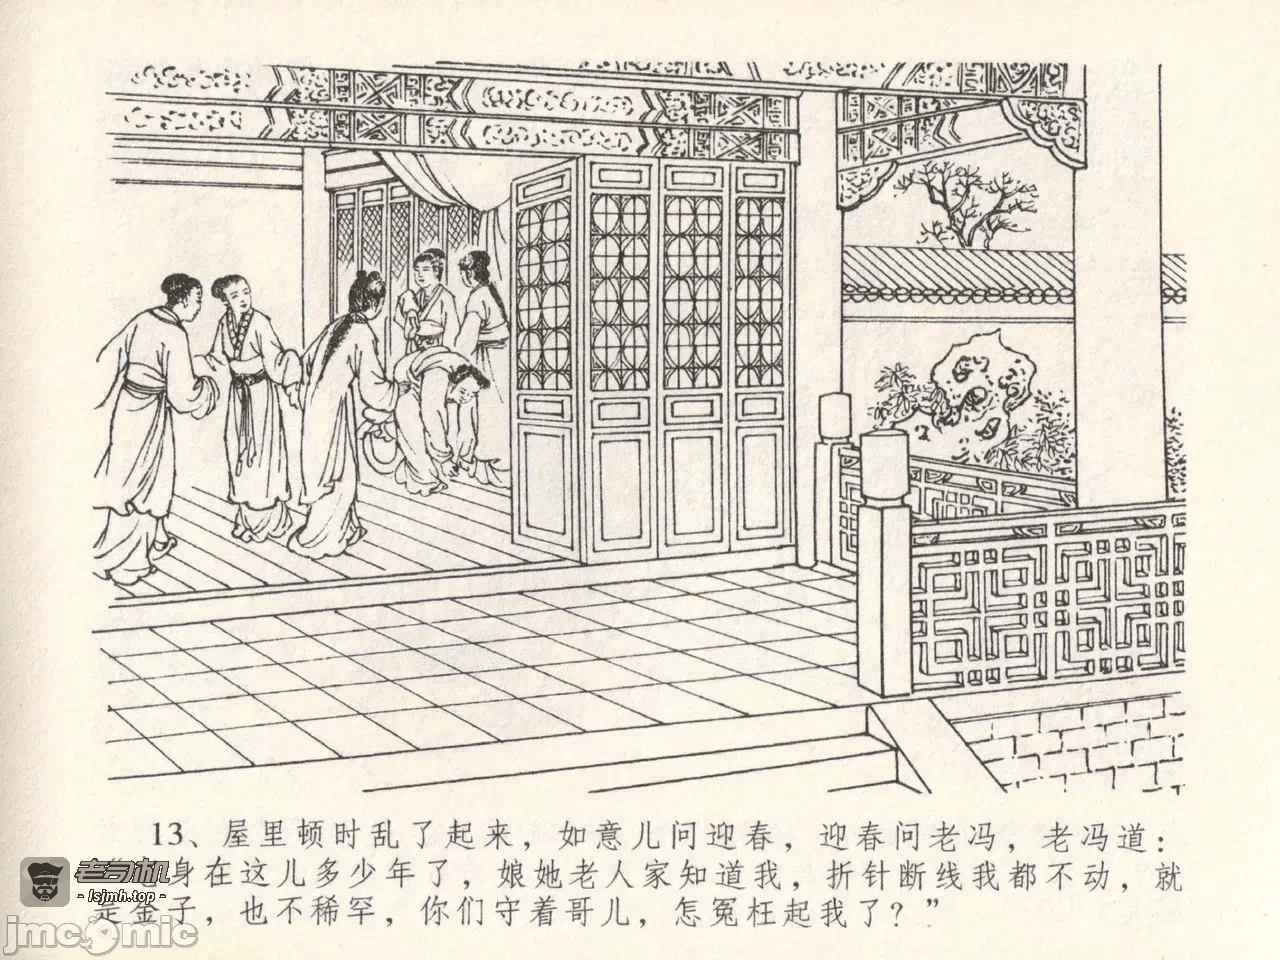 13、屋里顿时乱了起来，如意儿问迎春，迎春问老冯，老冯道：
身在这儿多少年了，娘她老人家知道我，折针断线我都不动，就
是金子，也不稀罕，你们守着哥儿，怎冤枉起我了？”
老司机
- lsjmh.top -
jmcomic